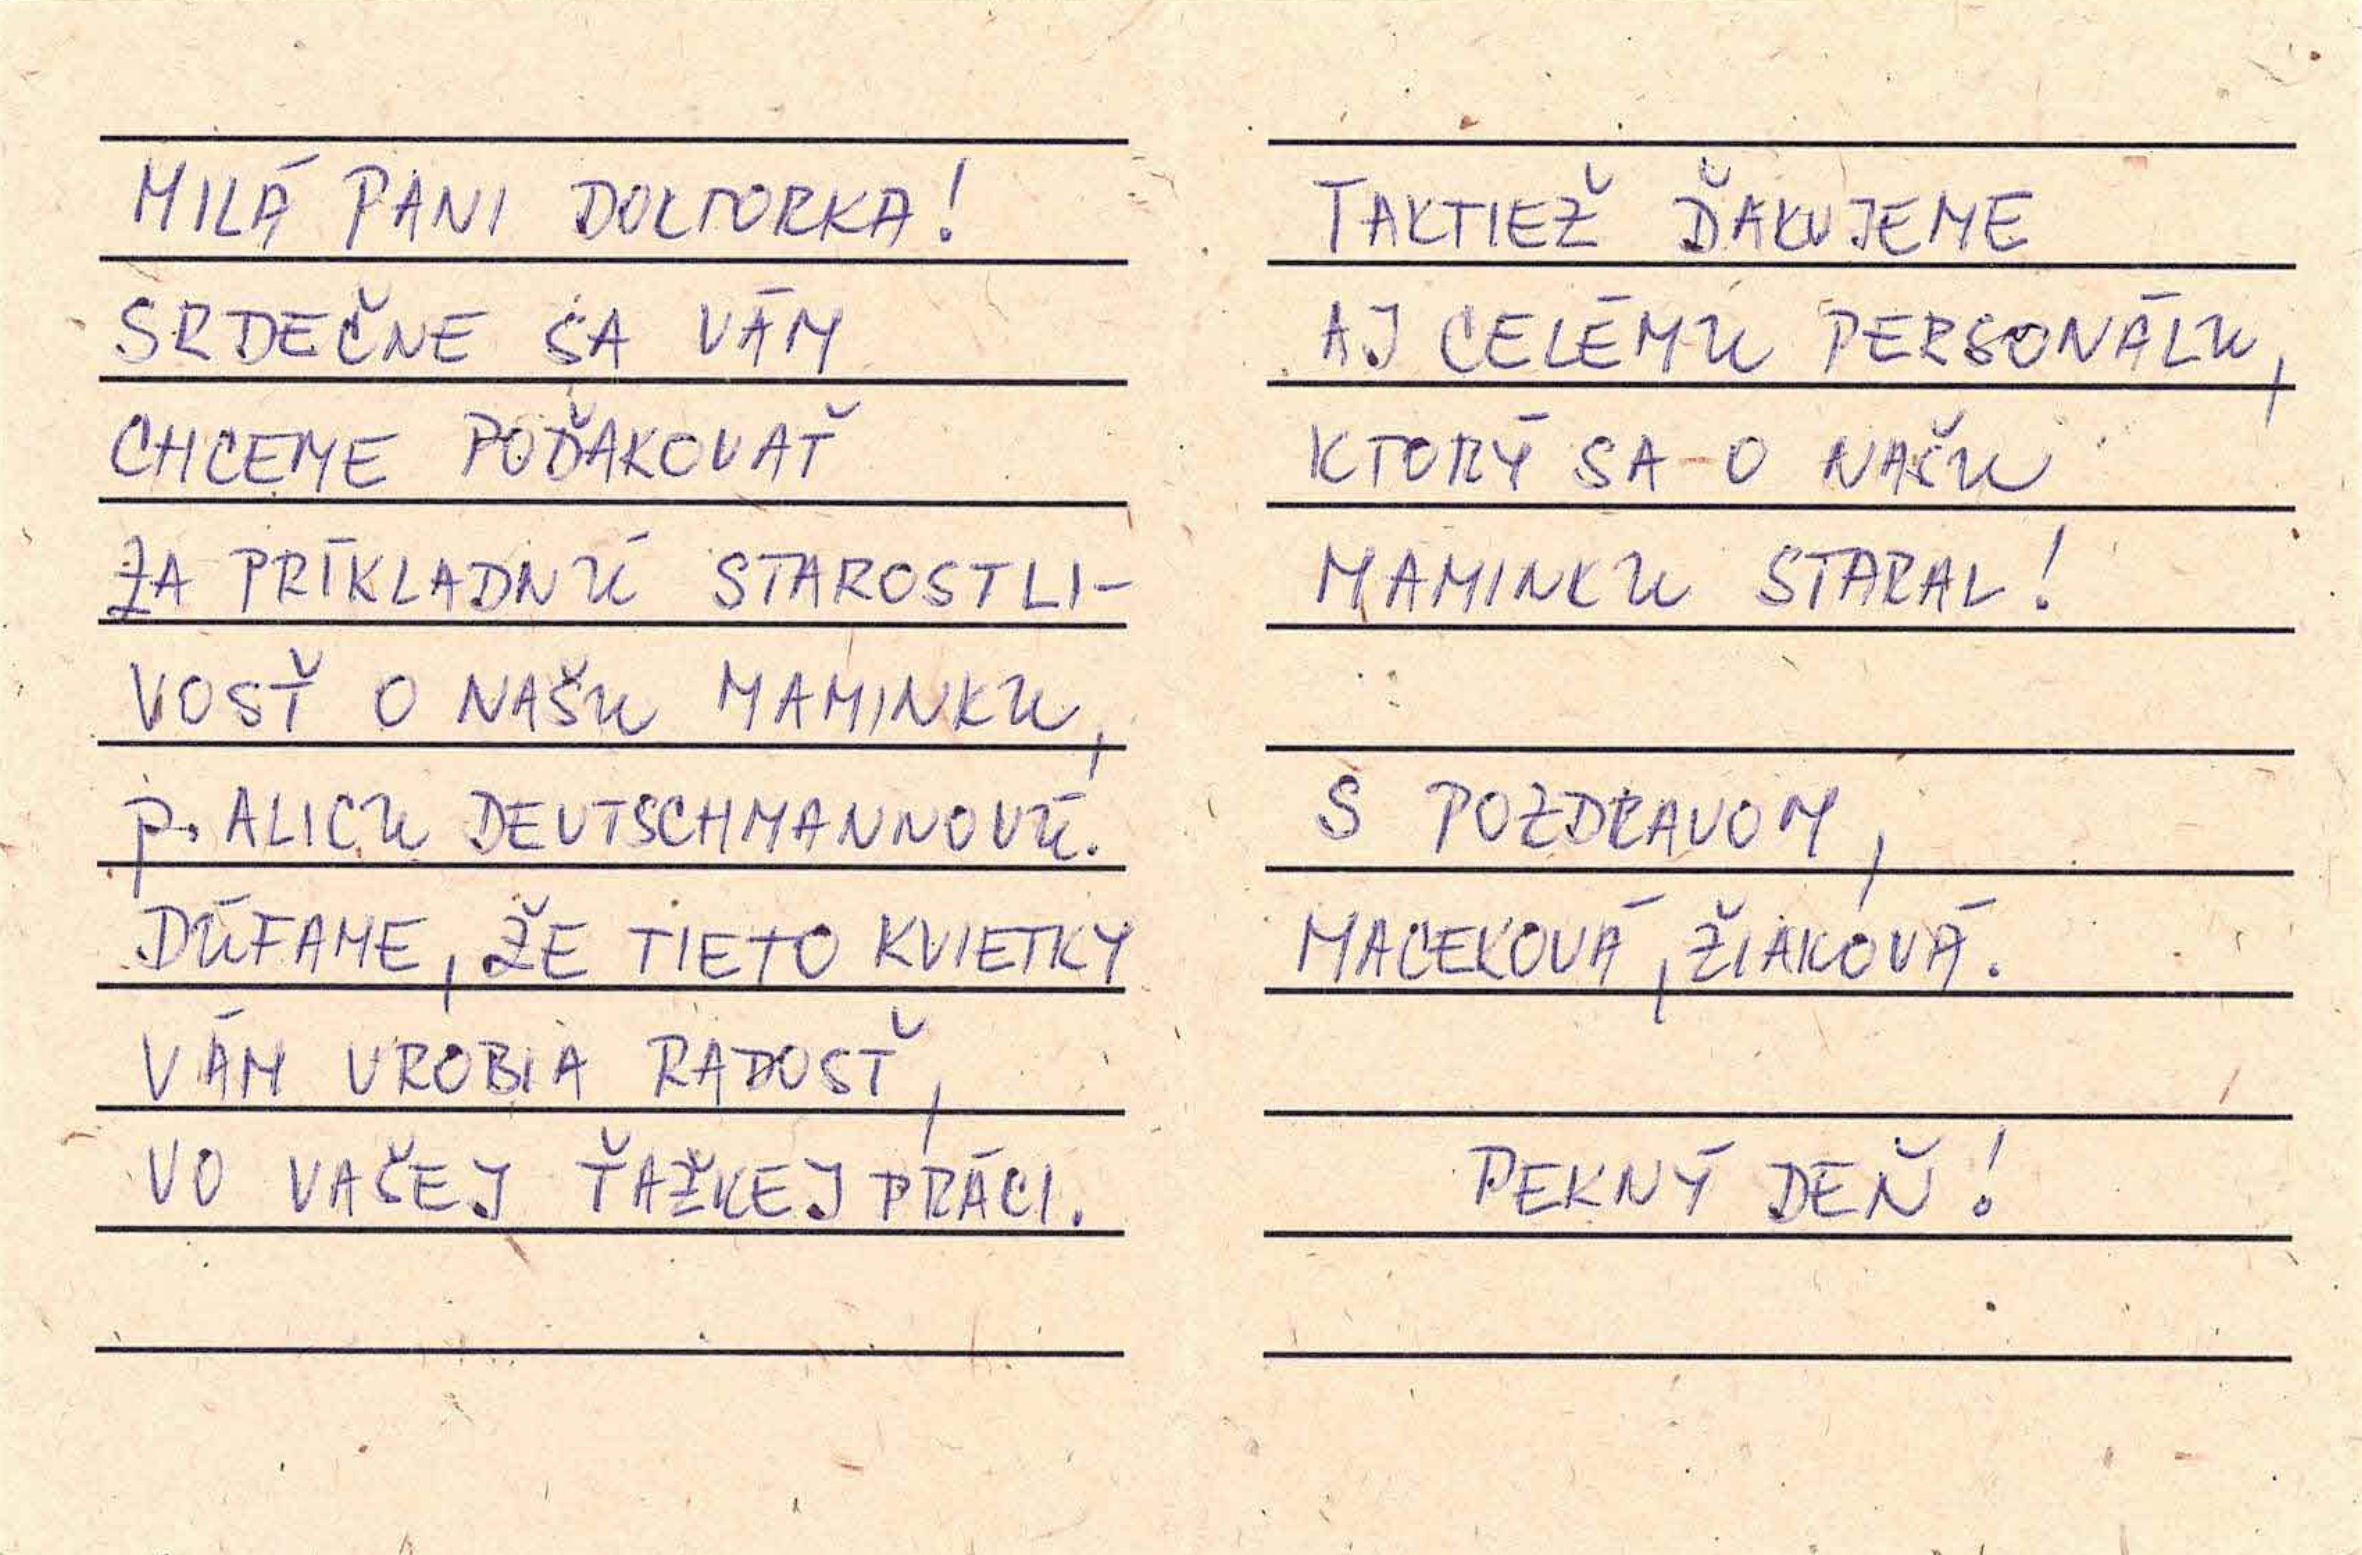 MILÁ PANI DOKTORKA!
SRDEČNE SA VÁM
CHCEME POĎAKOVAŤ
ZA PRÍKLADNÚ STAROSTLI-
VOSŤ O NAŠU MAMINKU,
p. ALICU DEUTSCHMANNOVÚ.
DÚFAME, ŽE TIETO KVIETKY
VÁM UROBIA RADOSŤ,
VO VAŠEJ ŤAŽKEJ PRÁCI.
TAKTIEŽ ĎAKUJEME
AJ CELÉMU PERSONÁLU,
KTORÝ SA O NAŠU
MAMINKU STARAL!
S POZDRAVOM,
MACEKOVÁ, ŽIAKOVÁ.
PEKNÝ DEŇ!